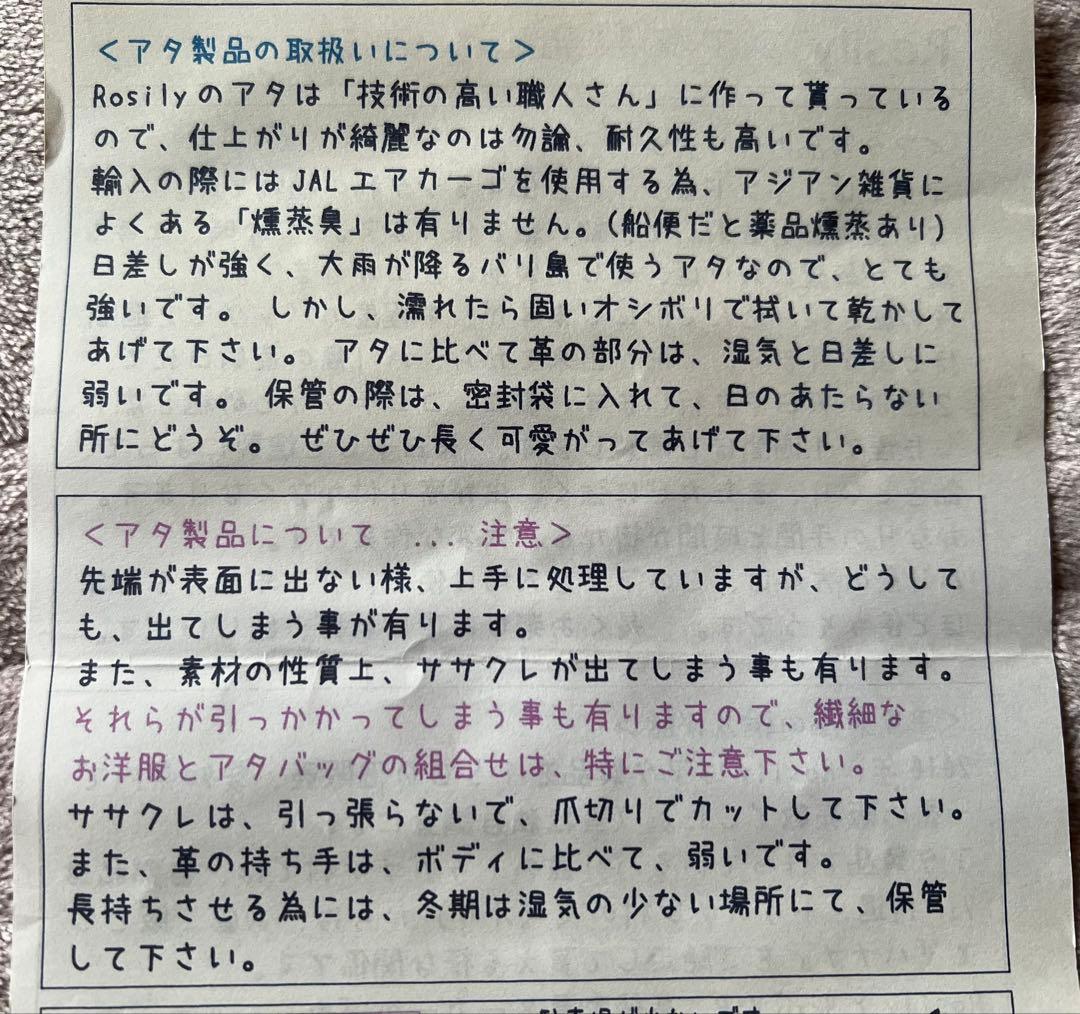 ＜アタ製品の取扱いについて＞
Rosilyのアタは「技術の高い職人さん」に作って貰っている
ので、仕上がりが綺麗なのは勿論、耐久性も高いです。
輸入の際にはJALエアカーゴを使用する為、アジアン雑貨に
よくある「燻蒸臭」は有りません。(船便だと薬品燻蒸あり)
日差しが強く、大雨が降るバリ島で使うアタなので、とても
強いです。 しかし、濡れたら固いオシボリで拭いて乾かして
あげて下さい。 アタに比べて革の部分は、湿気と日差しに
弱いです。 保管の際は、密封袋に入れて、日のあたらない
所にどうぞ。 ぜひぜひ長く可愛がってあげて下さい。
＜アタ製品について ... 注意＞
先端が表面に出ない様、上手に処理していますが、どうして
も、出てしまう事が有ります。
また、素材の性質上、ササクレが出てしまう事も有ります。
それらが引っかかってしまう事も有りますので、繊細な
お洋服とアタバッグの組合せは、特にご注意下さい。
ササクレは、引っ張らないで、爪切りでカットして下さい。
また、革の持ち手は、ボディに比べて、弱いです。
長持ちさせる為には、冬期は湿気の少ない場所にて、保管
して下さい。